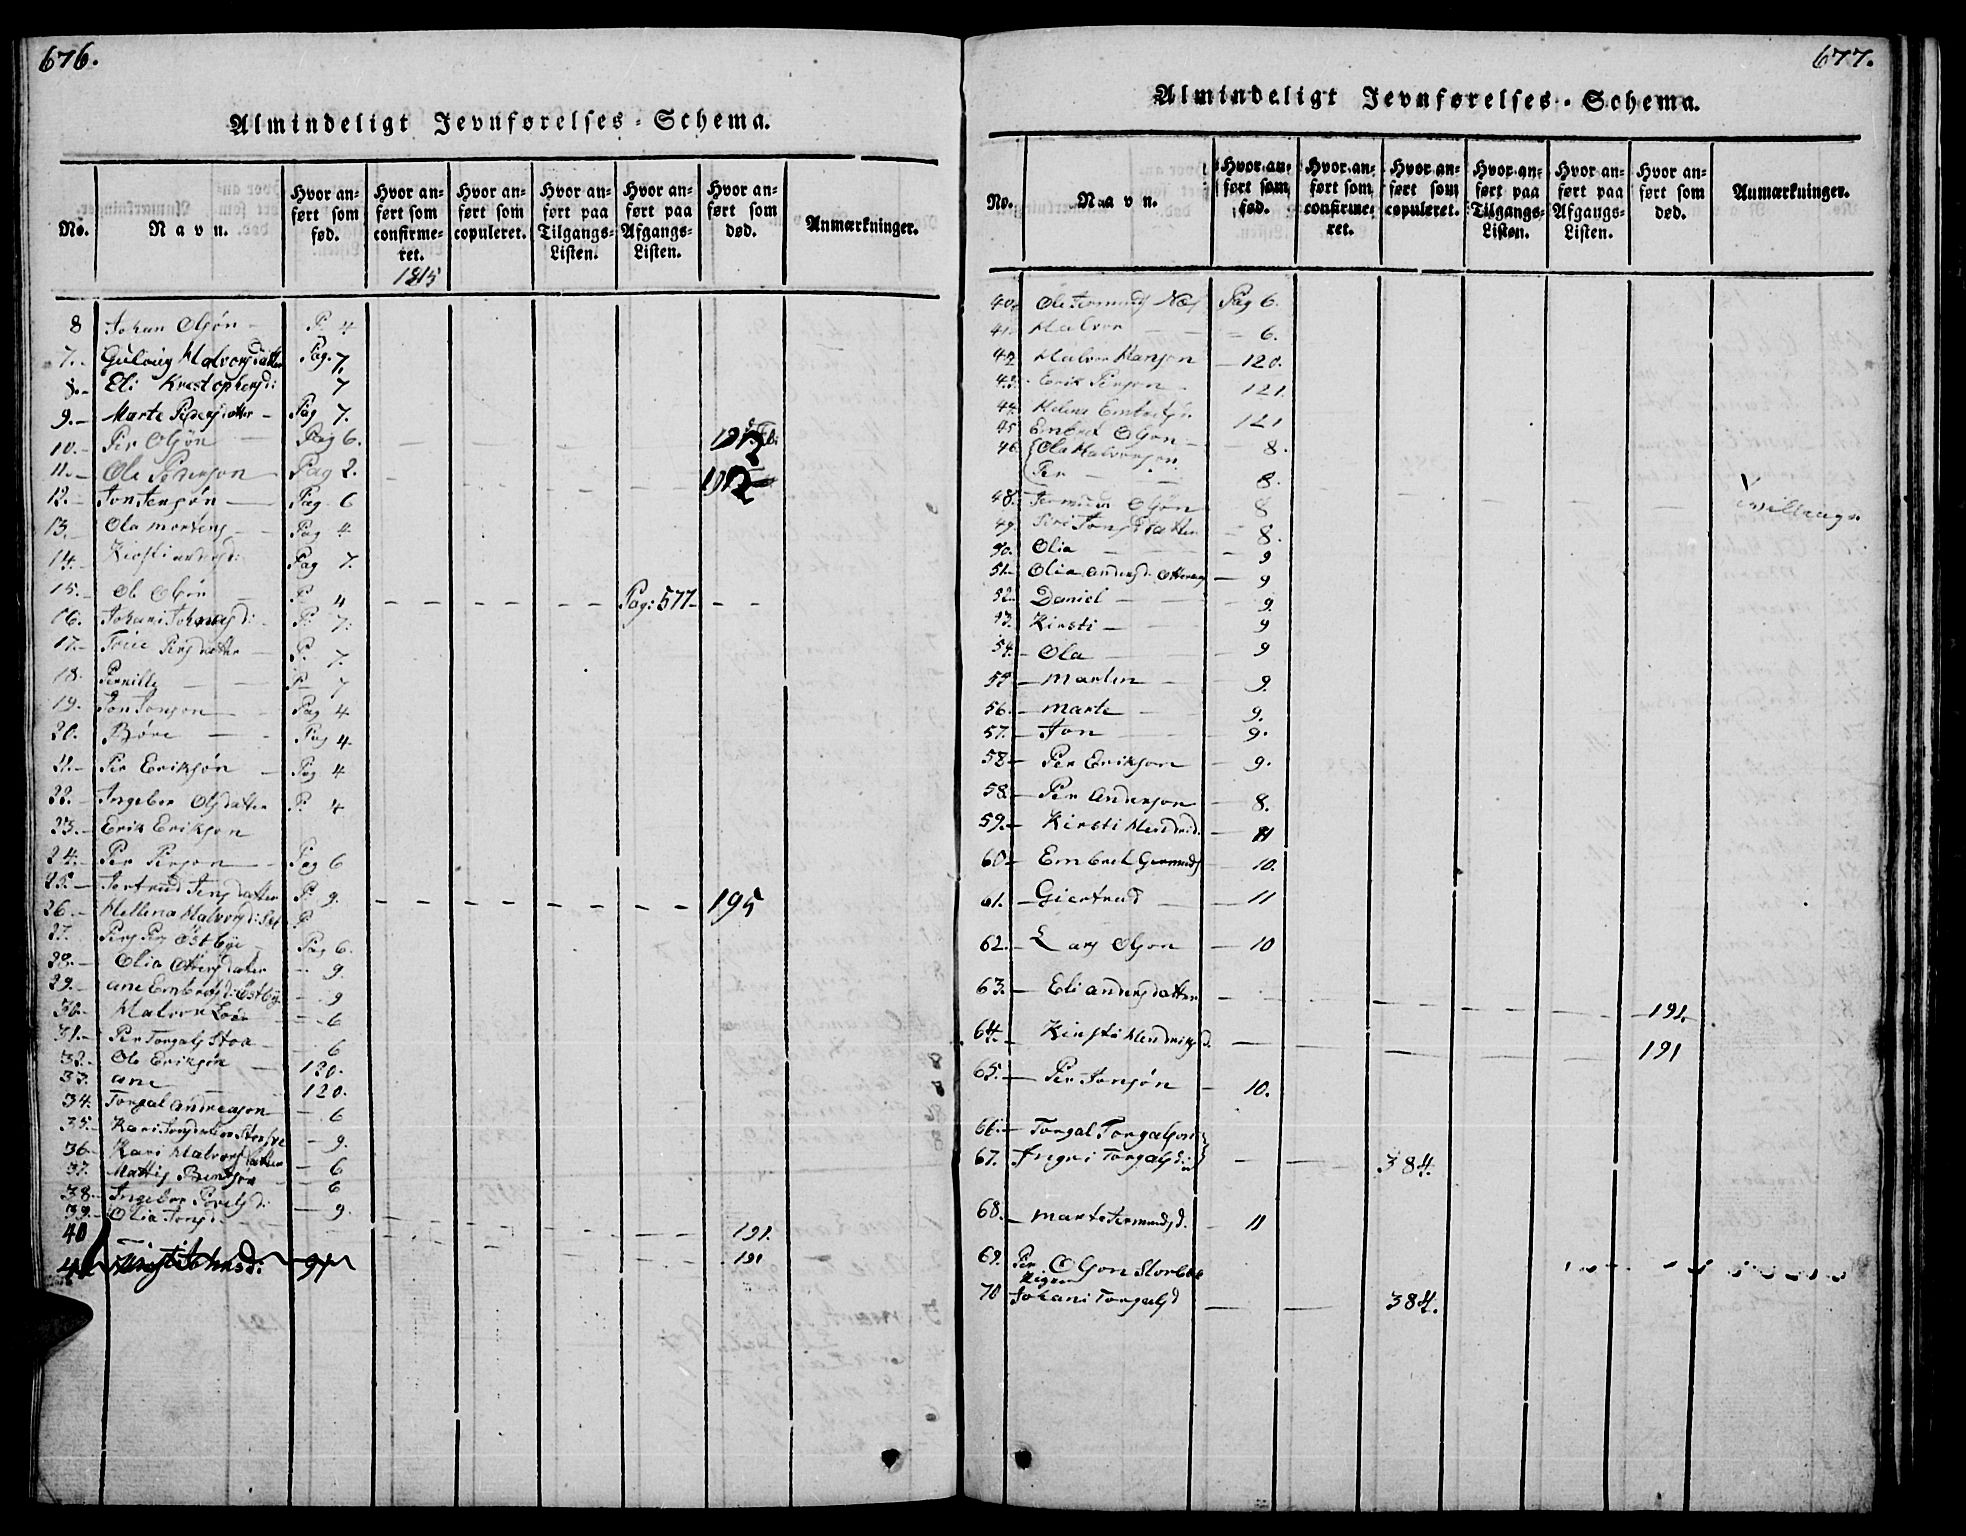 676.
Almindeligt Jevnførelses-Schema.
No.
Navn.
Hvor anført som fød.
Hvor anført som confirmeret.
1815
Hvor anført som copuleret.
Hvor anført paa Tilgangs-Listen.
Hvor anført paa Afgangs-Listen.
Hvor anført som død.
Anmærkninger.
8 Johan Olsøn P. 4
7. Halvorsdatter Pag. 7.
8. Eli 7
9. Marte Pedersdatter Pag 7.
10. Per Olsøn Pag 6.
11. Ole Pederson Pag 2.
12. Jon Jensøn Pag 6
13. Ola Mortens Pag 4
14. Kirsti Pag 7.
15. Ol Olsøn P. 4 Pag: 577
16. P. 7.
17. Persdatter P. 7.
18. Pernille P. 7
19. Jon Jonson Pag 4
20. Børe Pag 4.
21. Per Eriksøn Pag 4
22. Ingebor Olsdatter P. 4
23. Erik Erikson
24. Per Person Pag 6
25. Jertrud Jensdatter P. 9. 195
26. Hellena Halvorsd: P
27. Østbye Pag 6.
28. Olia Ottersdatter 9.
29. ane Embretsd: Østby 9
30. Halvor 6
31. Per Torgals Stoa 6
32. Ole Eriksøn 120.
33. ane 120.
34. Torgal andreason 6
35. Kari 9.
36. Kari Halvorsdatter 6
37. Mattis Bentson 6
38. Ingebor 9.
39. Olia Jonsd.
40 191.
191
677.
Almindeligt Jevnførelses-Schema.
No.
Navn.
Hvor anført som fød.
Hvor anført som confirmeret.
Hvor anført som copuleret.
Hvor anført paa Tilgangs-Listen.
Hvor anført paa Afgangs-Listen.
Hvor anført som død.
Anmærkninger.
40. Ole Pag 6.
41. Halvor 6.
42 Halvor Hanson 120.
43. Erik Person 121.
44. Helene Embretsd. 121
45 Embret Olson 8.
46 Ola Halvorson
Per 8.
Tvillinger
48. Olson 8
49. Siri Jonsdatter 8.
50. Olia 9
51. Olia andersd. 9
52. Daniel 9.
53. Kirsti 9
54. Ola 9
55 Marten 9.
56. Marte 9.
57. Jon 9.
58 Per Erikson 9.
58. Per Anderson 8.
59. Kirsti Hendrid. 11
60 Embret Germunds 10.
61. Giertrud 11
62. Lars Olson 10
63. Eli andersdatter 191.
64. Kirsti Hendriksd. 191
65. Per Jonsøn 10.
66. Torgal Torgalson
67. Ingri Torgalsd: 384.
68. Marte Jermundsd. 11
69. Per Olson
70 Johani Torgalsd 384.